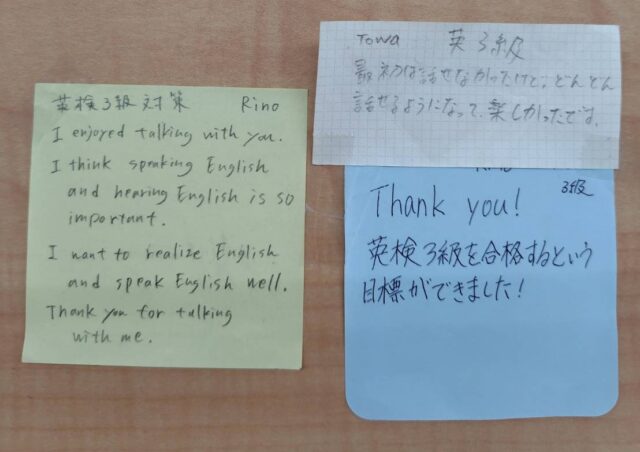 英検3級対策 Rino
I enjoyed talking with you.
I think speaking English
and hearing English is so
important.
I want to realize English
and speak English well.
Thank you for talking
with me.
Towa 英3級
最初は話せなかったけど、どんどん
話せるようになって、楽しかったです。
3級
Thank you!
英検3級を合格するという
目標ができました!